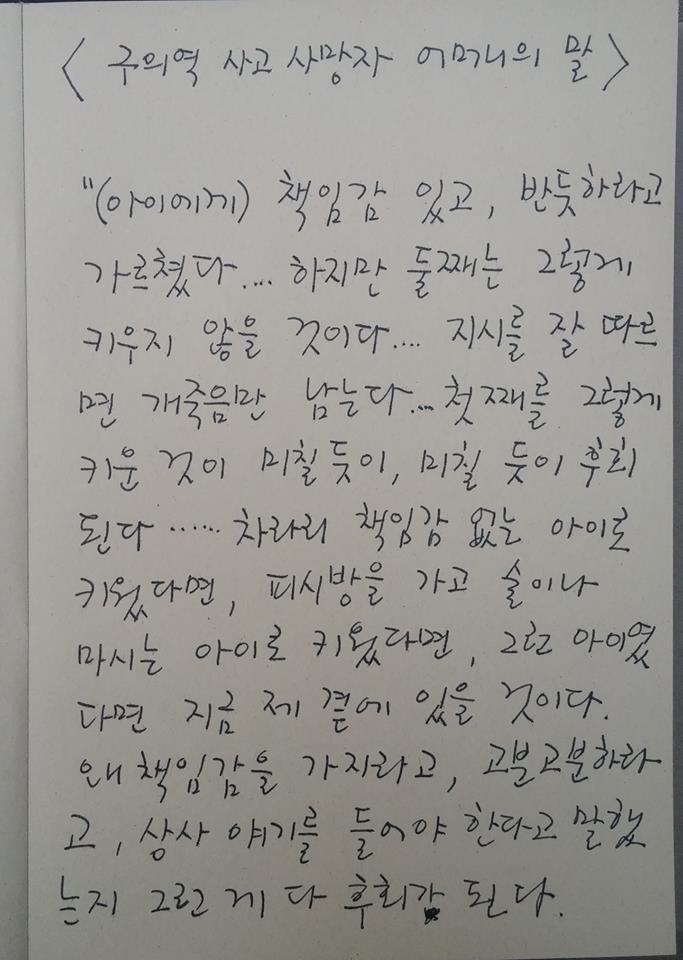 < 구의역 사고 사망자 어머니의 말 >
"(아이에게) 책임감 있고, 반듯하라고
가르쳤다.... 하지만 둘째는 그렇게
키우지 않을 것이다.... 지시를 잘 따르
면 개죽음만 남는다... 첫째를 그렇게
키운 것이 미칠 듯이, 미칠 듯이 후회
된다 ...... 차라리 책임감 없는 아이로
키웠다면, 피시방을 가고 술이나
마시는 아이로 키웠다면, 그런 아이였
다면 지금 제 곁에 있을 것이다.
왜 책임감을 가지라고, 고분고분하라
고, 상사 얘기를 들어야 한다고 말했
는지 그런 게 다 후회가 된다.